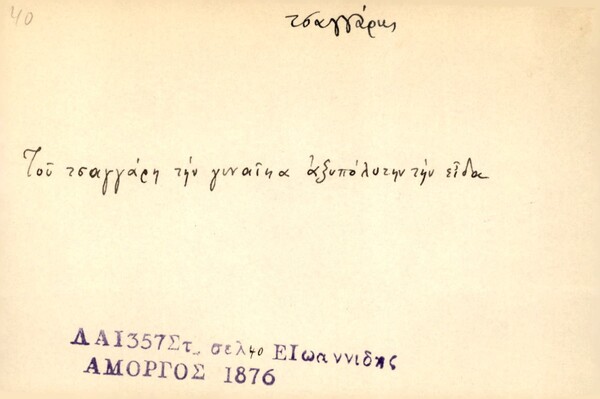 40
τσαγγάρης
Τοῦ τσαγγάρη τὴν γυναῖκα ἀξυπόλυτην τὴν εἶδα
ΛΑ1357Στ. σελ 40 ΕΙωαννιδης
ΑΜΟΡΓΟΣ 1876